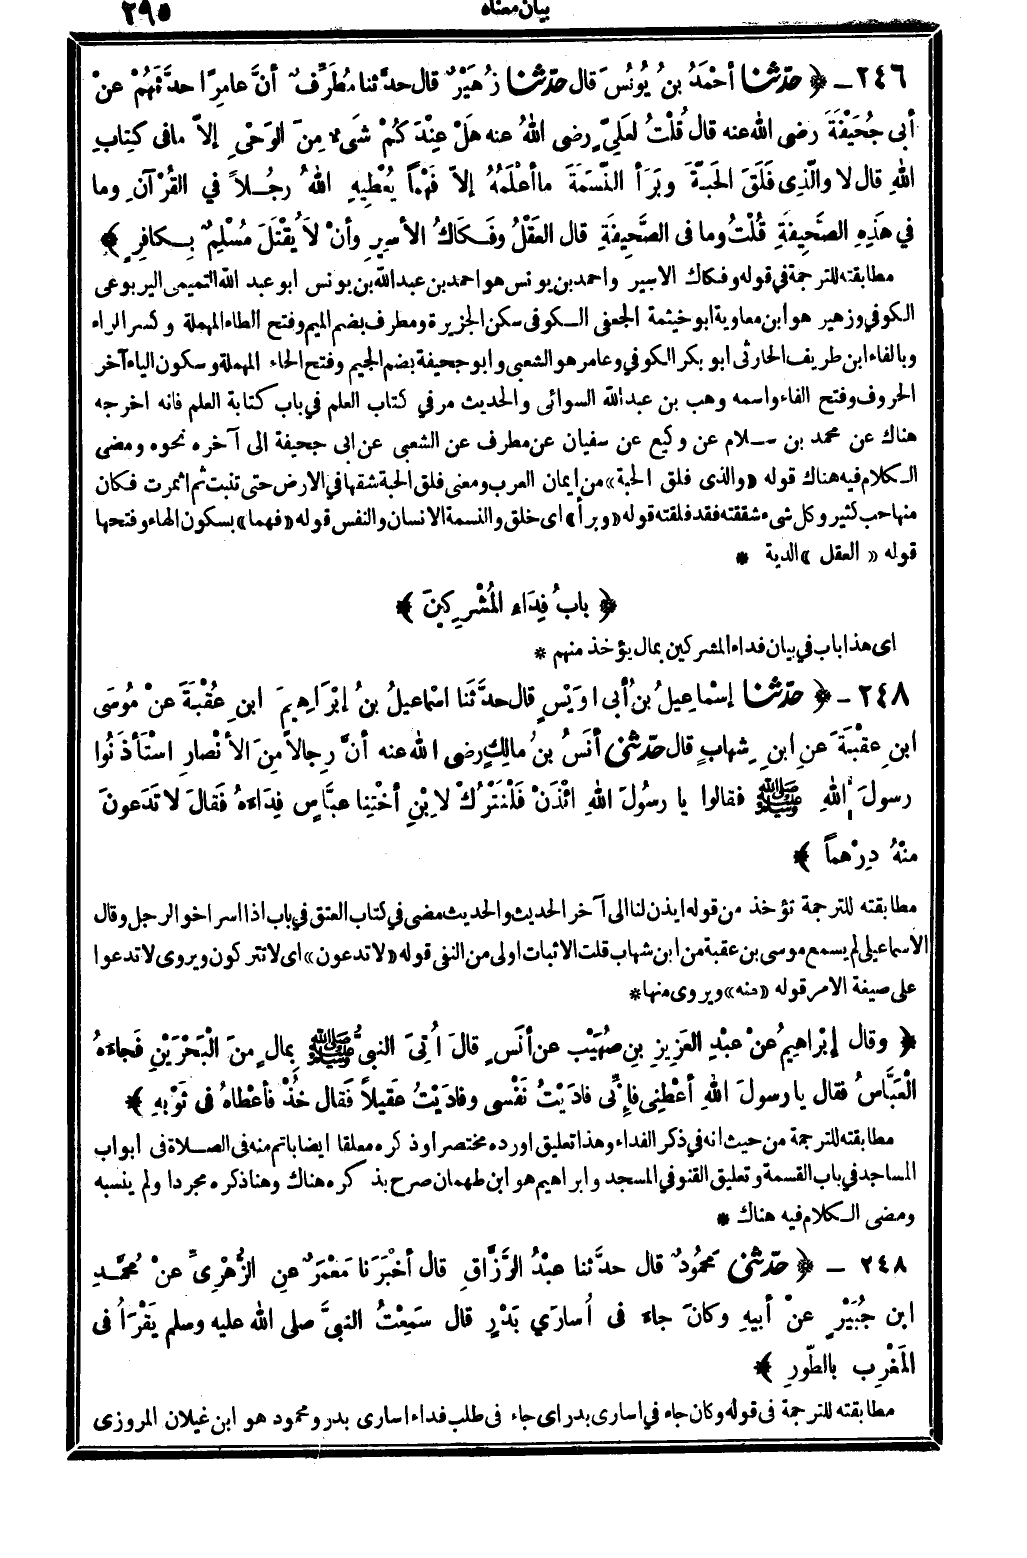 بيان معناه ٢٩٥
٢٤٦ ـ ﴿ حدّثنا أحْمَدُ بنُ يُونُسَ قال حدّثنا زُهَيْرٌ قال حدَّثنا مُطَرِّفٌ أنَّ عامِرًا حدَّثَهُمْ عنْ
أبى جُحَيْفَةَ رضى اللهُ عنه قال قُلْتُ لعَلِيٍّ رضى اللهُ عنه هَلْ عِنْدَكُمْ شَىءٌ مِنَ الوَحْىِ إلاّ مافى كِتابِ
اللهِ قال لا والَّذِى فَلَقَ الحَبَّةَ وبَرَأ النَّسَمَةَ ماأعْلَمُهُ إلاّ فَهْمًا يُعْطِيهِ اللهُ رجُلاً في القُرْآنِ وما
في هذِهِ الصَّحِيفَةِ قُلْتُ وما فى الصَّحِيفَةِ قال العَقْلُ وفَكاكُ الأسِيرِ وأنْ لاَ يُقْتَلَ مُسْلِمٌ بِكافِرٍ ﴾
مطابقته للترجمة في قوله وفكاك الاسير واحمد بن يونس هو احمد بن عبدالله بن يونس ابو عبد الله التميمى اليربوعى
الكوفي وزهير هو ابن معاوية ابو خيثمة الجعفى الكوفى سكن الجزيرة ومطرف بضم الميم وفتح الطاء المهملة وكسر الراء
وبالفاء ابن طريف الحارثى ابو بكر الكوفي وعامر هو الشعبى وابو جحيفة بضم الجيم وفتح الحاء المهملة وسكون الياء آخر
الحروف وفتح الفاء واسمه وهب بن عبدالله السوائى والحديث مر في كتاب العلم في باب كتابة العلم فانه اخرجه
هناك عن محمد بن سلام عن وكيع عن سفيان عن مطرف عن الشعبى عن ابى جحيفة الى آخره نحوه ومضى
الكلام فيه هناك قوله «والذى فلق الحبة» من ايمان العرب ومعنى فلق الحبة شقها في الارض حتى تنبت ثم اثمرت فكان
منها حب كثير وكل شىء شققته فقد فلقته قوله «وبرأ» اى خلق والنسمة الانسان والنفس قوله «فهما» بسكون الهاء وفتحها
قوله « العقل » الدية *
﴿ بابُ فِدَاءِ المُشْرِكِينَ ﴾
اى هذا باب في بيان فداء المشركين بمال يؤخذ منهم *
٢٤٨ ـ ﴿ حدّثنا إسْماعِيلُ بنُ أبى اوَيْسٍ قال حدَّثَنا اسْماعيلُ بنُ إبْرَاهِيمَ ابنِ عُقْبَةَ عنْ مُوسَى
ابنِ عقْبَةَ عنِ ابنِ شِهابٍ قال حدّثنى أنَسُ بنُ مالِكٍ رضى اللهُ عنه أنَّ رِجالاً مِنَ الأنْصارِ اسْتَأذَنُوا
رسولَ اللهِ ﷺ فقالوا يا رسُولَ اللهِ ائْذَنْ فَلْنَتْرُكْ لاِبْنِ أخْتِنا عبَّاسٍ فِدَاءَهُ فَقَالَ لا تَدَعونَ
منْهُ دِرْهماً ﴾
مطابقته للترجمة تؤخذ من قوله ايذن لنا الى آخر الحديث والحديث مضى في كتاب العتق في باب اذا اسر اخو الرجل وقال
الاسماعيلى لم يسمع موسى بن عقبة من ابن شهاب قلت الاثبات اولى من النفى قوله «لا تدعون» اى لا تتركون ويروى لا تدعوا
على صيغة الامر قوله «منه» ويروى منها *
﴿ وقال إبْراهِيمُ عنْ عبْدِ العَزِيزِ بنِ صُهَيْبٍ عن أنَسٍ قالَ أُتِىَ النبىُّ ﷺ بِمالٍ منَ الْبَحْرَيْنِ فَجاءَهُ
الْعَبَّاسُ فقال يا رسولَ اللهِ أعْطِنِى فإنِّى فادَيْتُ نَفْسى وفادَيْتُ عَقيلاً فَقال خُذْ فأعْطاهُ فى ثَوْبِهِ ﴾
مطابقته للترجمة من حيث انه في ذكر الفداء وهذا تعليق اورده مختصرا وذكره معلقا ايضا باتم منه فى الصلاة فى ابواب
المساجد في باب القسمة وتعليق القنو في المسجد وابراهيم هو ابن طهمان صرح بذكره هناك وهنا ذكره مجردا ولم ينسبه
ومضى الكلام فيه هناك *
٢٤٨ ـ ﴿ حدّثنى مَحْمُودٌ قال حدَّثنا عبْدُ الرَّزَّاقِ قال أخْبَرَنا مَعْمَرٌ عنِ الزُّهْرِىِّ عنْ مُحمَّدِ
ابن جُبَيْرٍ عنْ أبيهِ وكانَ جاءَ فى أُسارَي بَدْرٍ قال سَمِعْتُ النبىَّ صلى الله عليه وسلم يَقْرَأُ فى
المَغْرِبِ بالطُّورِ ﴾
مطابقته للترجمة فى قوله وكان جاء في اسارى بدر اى جاء فى طلب فداء اسارى بدر ومحمود هو ابن غيلان المروزى